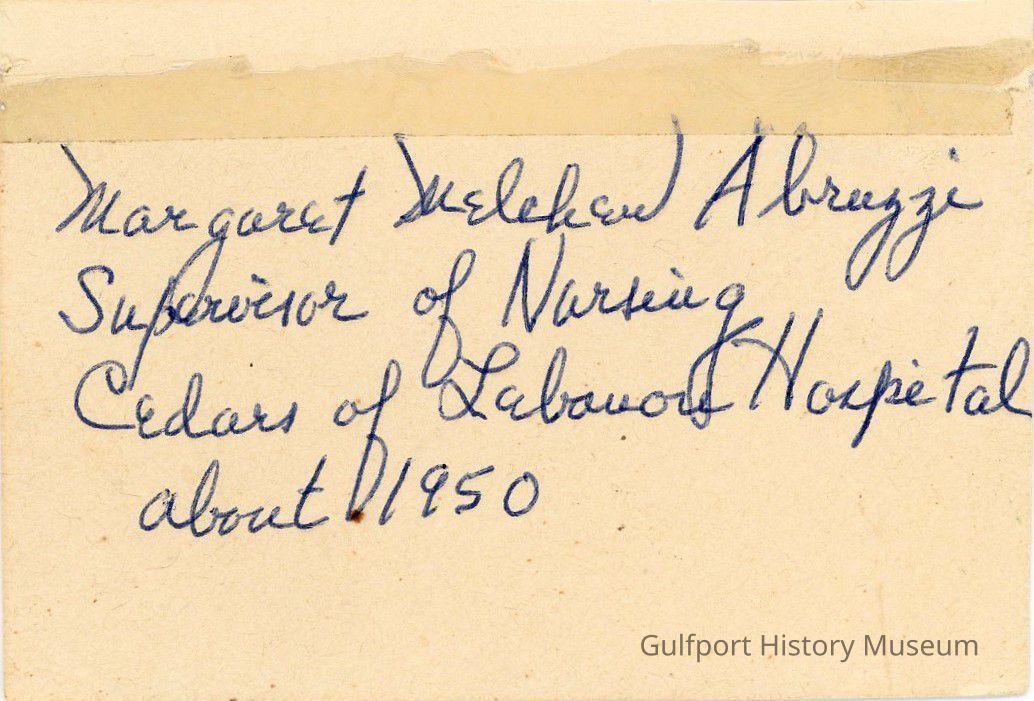 Margaret Melcher Abruzzi
Supervisor of Nursing
Cedars of Lebanon Hospital
about 1950
Gulfport History Museum